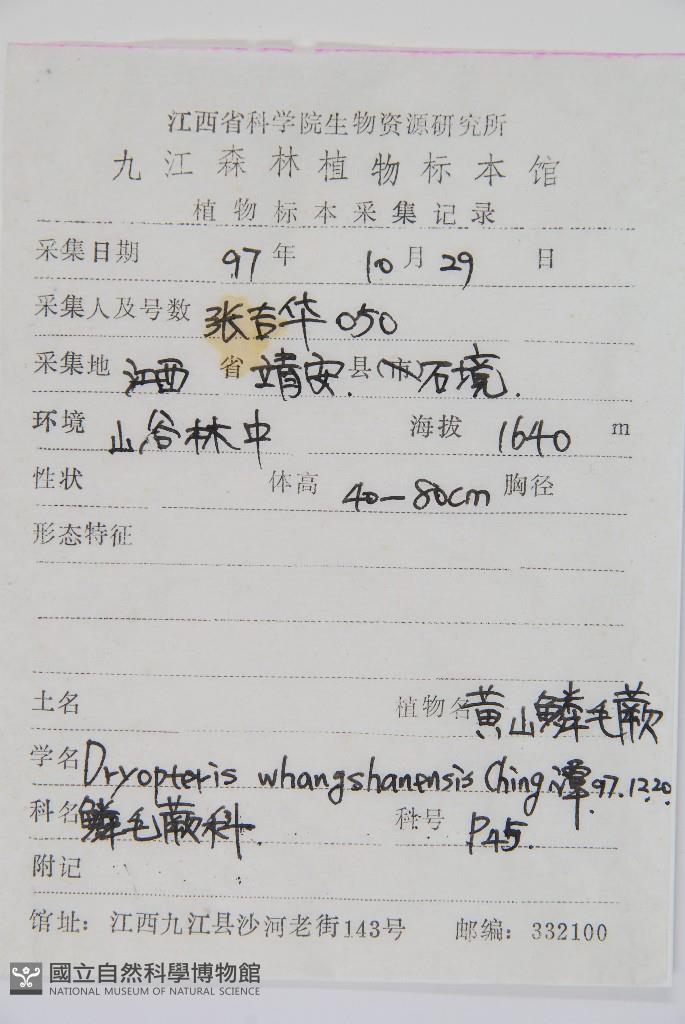 江西省科学院生物资源研究所
九江森林植物标本馆
植物标本采集记录
采集日期 97 年 10 月 29 日
采集人及号数 张吉华 050
采集地 江西 省 靖安. 县(市) 石境.
环境 山谷林中 海拔 1640 m
性状 体高 40—80cm 胸径
形态特征
土名 植物名 黄山鳞毛蕨
学名 Dryopteris whangshanensis Ching. 谭. 97.12.20
科名 鳞毛蕨科. 科号 P45.
附记
馆址: 江西九江县沙河老街143号 邮编: 332100
國立自然科學博物館
NATIONAL MUSEUM OF NATURAL SCIENCE